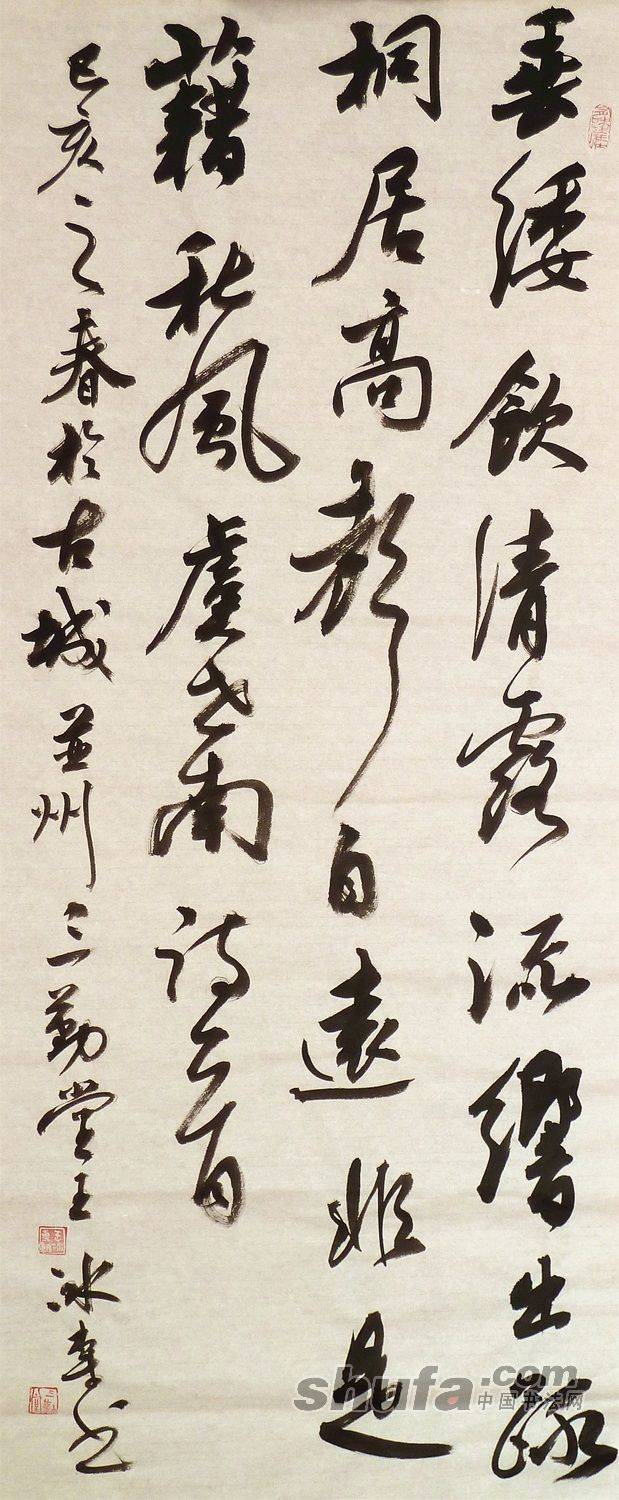 垂緌飲清露流響出疏
桐居高聲自遠非是
藉秋風虞世南詩一首
己亥之春於古城並州三勤堂王冰書
shufa.com
中国书法网